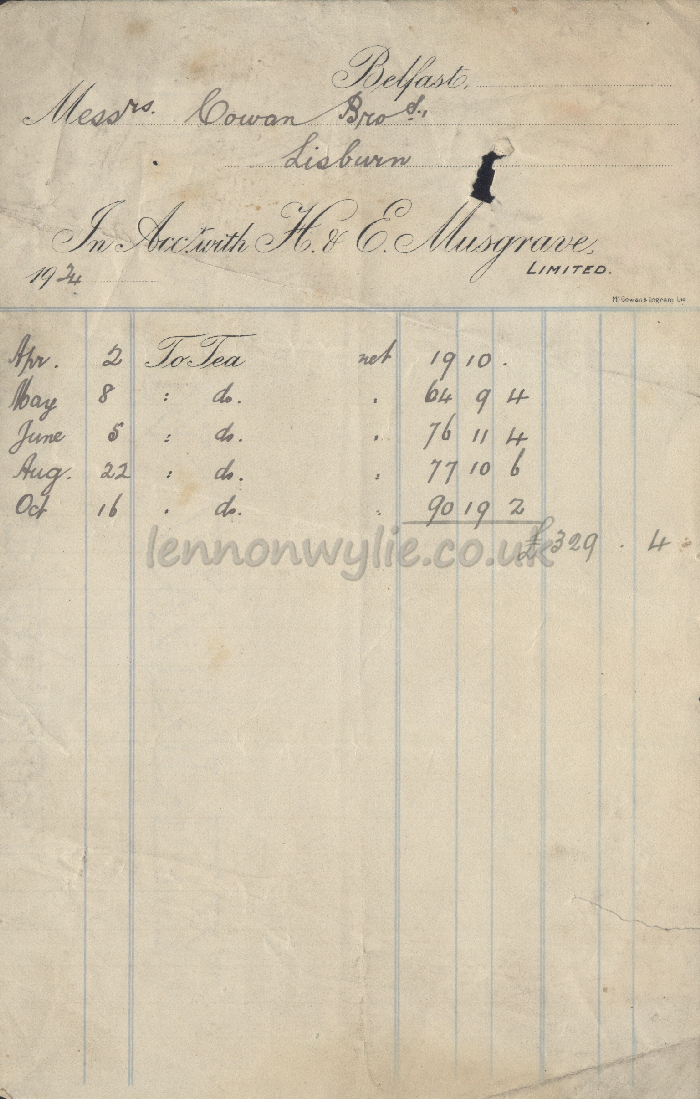 Belfast,
Messrs. Cowan Bros.,
Lisburn
In Acct. with H. & E. Musgrave,
LIMITED.
1924
McCowan & Ingram Ltd
Apr. 2 To Tea net 19 10 .
May 8 : do. . 64 9 4
June 5 : do. . 76 11 4
Aug. 22 : do. : 77 10 6
Oct 16 . do. : 90 19 2
£329 . 4
lennonwylie.co.uk